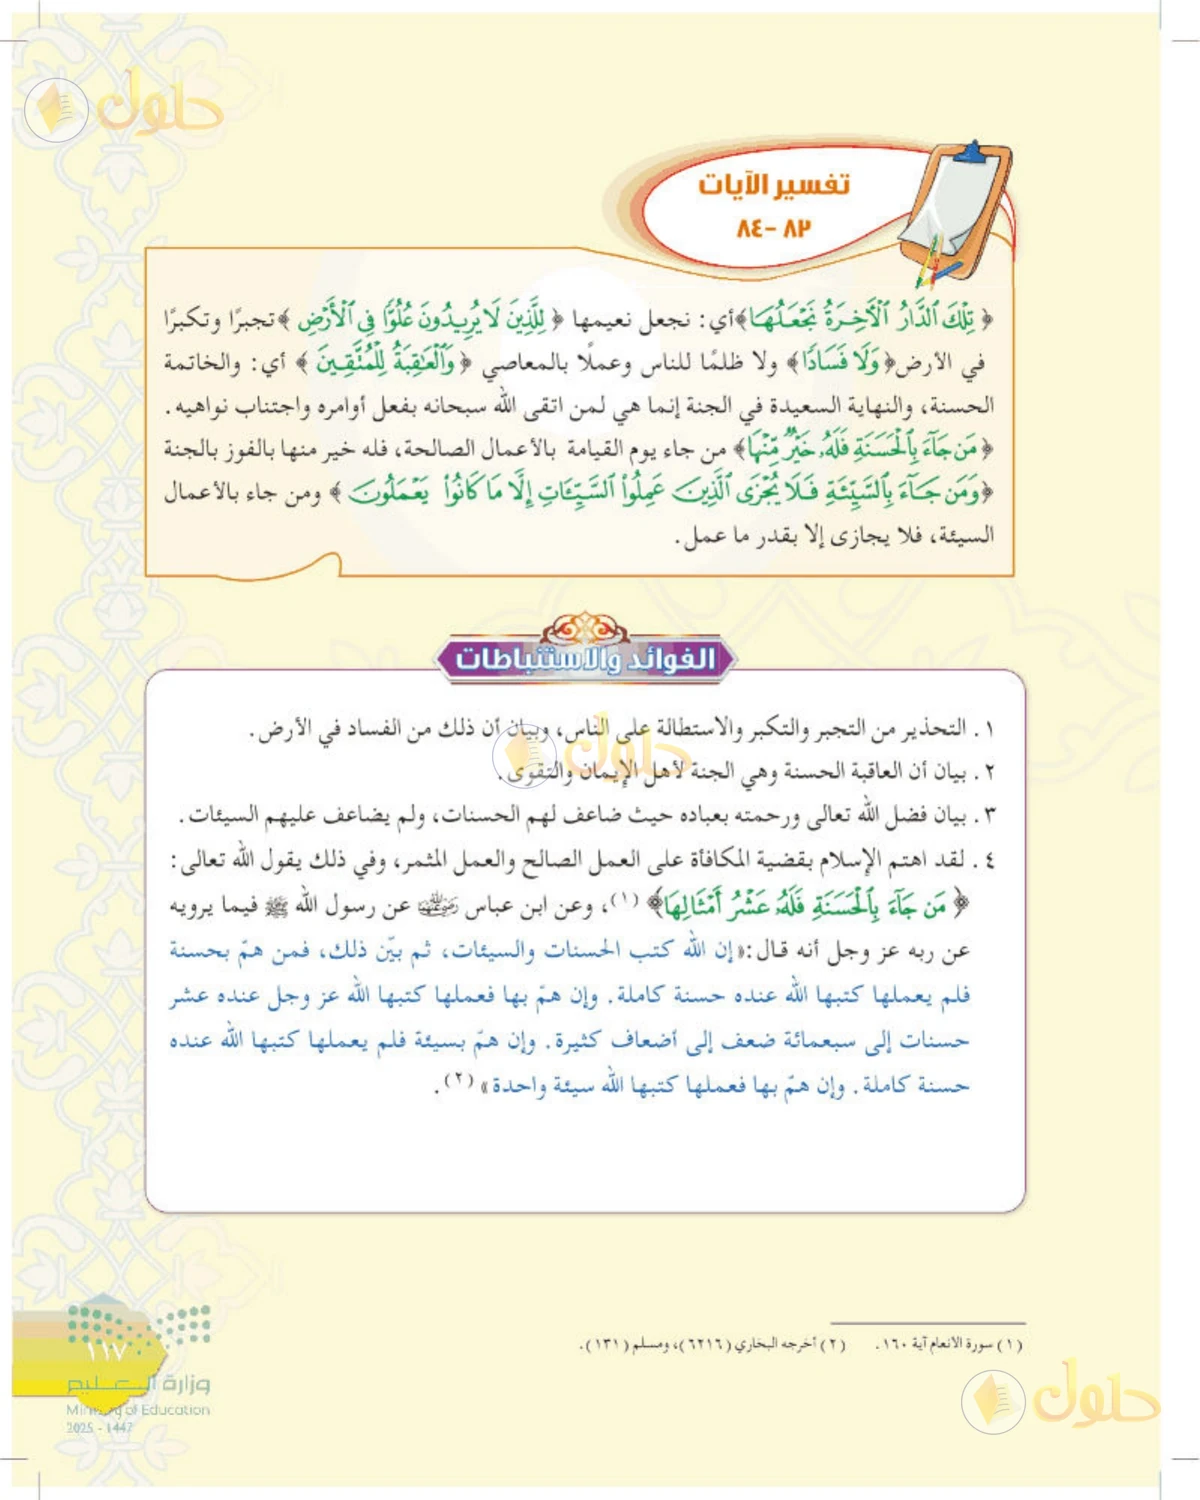 حلول
تفسير الآيات
٨٢ -٨٤
﴿ تِلْكَ ٱلدَّارُ ٱلْآخِرَةُ نَجْعَلُهَا﴾أي: نجعل نعيمها ﴿ لِلَّذِينَ لَا يُرِيدُونَ عُلُوًّا فِي ٱلْأَرْضِ ﴾تجبرًا وتكبرًا
في الأرض﴿ وَلَا فَسَادًا﴾ ولا ظلمًا للناس وعملًا بالمعاصي ﴿ وَٱلْعَـٰقِبَةُ لِلْمُتَّقِينَ ﴾ أي: والخاتمة
الحسنة، والنهاية السعيدة في الجنة إنما هي لمن اتقى الله سبحانه بفعل أوامره واجتناب نواهيه.
﴿ مَن جَآءَ بِٱلْحَسَنَةِ فَلَهُۥ خَيْرٌ مِّنْهَا﴾ من جاء يوم القيامة بالأعمال الصالحة، فله خير منها بالفوز بالجنة
﴿وَمَن جَآءَ بِٱلسَّيِّئَةِ فَلَا يُجْزَى ٱلَّذِينَ عَمِلُوا۟ ٱلسَّيِّئَاتِ إِلَّا مَا كَانُوا۟ يَعْمَلُونَ ﴾ ومن جاء بالأعمال
السيئة، فلا يجازى إلا بقدر ما عمل.
الفوائد والاستنباطات
١. التحذير من التجبر والتكبر والاستطالة على الناس، وبيان أن ذلك من الفساد في الأرض.
حلول
٢. بيان أن العاقبة الحسنة وهي الجنة لأهل الإيمان والتقوى.
٣. بيان فضل الله تعالى ورحمته بعباده حيث ضاعف لهم الحسنات، ولم يضاعف عليهم السيئات.
٤. لقد اهتم الإسلام بقضية المكافأة على العمل الصالح والعمل المثمر، وفي ذلك يقول الله تعالى:
﴿ مَن جَآءَ بِٱلْحَسَنَةِ فَلَهُۥ عَشْرُ أَمْثَالِهَا﴾ (١)، وعن ابن عباس رضي الله عنهما عن رسول الله ﷺ فيما يرويه
عن ربه عز وجل أنه قال:«إن الله كتب الحسنات والسيئات، ثم بيّن ذلك، فمن همّ بحسنة
فلم يعملها كتبها الله عنده حسنة كاملة. وإن همّ بها فعملها كتبها الله عز وجل عنده عشر
حسنات إلى سبعمائة ضعف إلى أضعاف كثيرة. وإن همّ بسيئة فلم يعملها كتبها الله عنده
حسنة كاملة. وإن همّ بها فعملها كتبها الله سيئة واحدة» (٢).
(١) سورة الانعام آية ١٦٠. (٢) أخرجه البخاري (٦٢١٦)، ومسلم (١٣١).
١١٧
وزارة التعليم
Ministry of Education
2025 - 1447
حلول